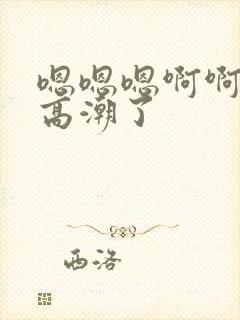 嗯嗯嗯啊啊
高潮了
西洛